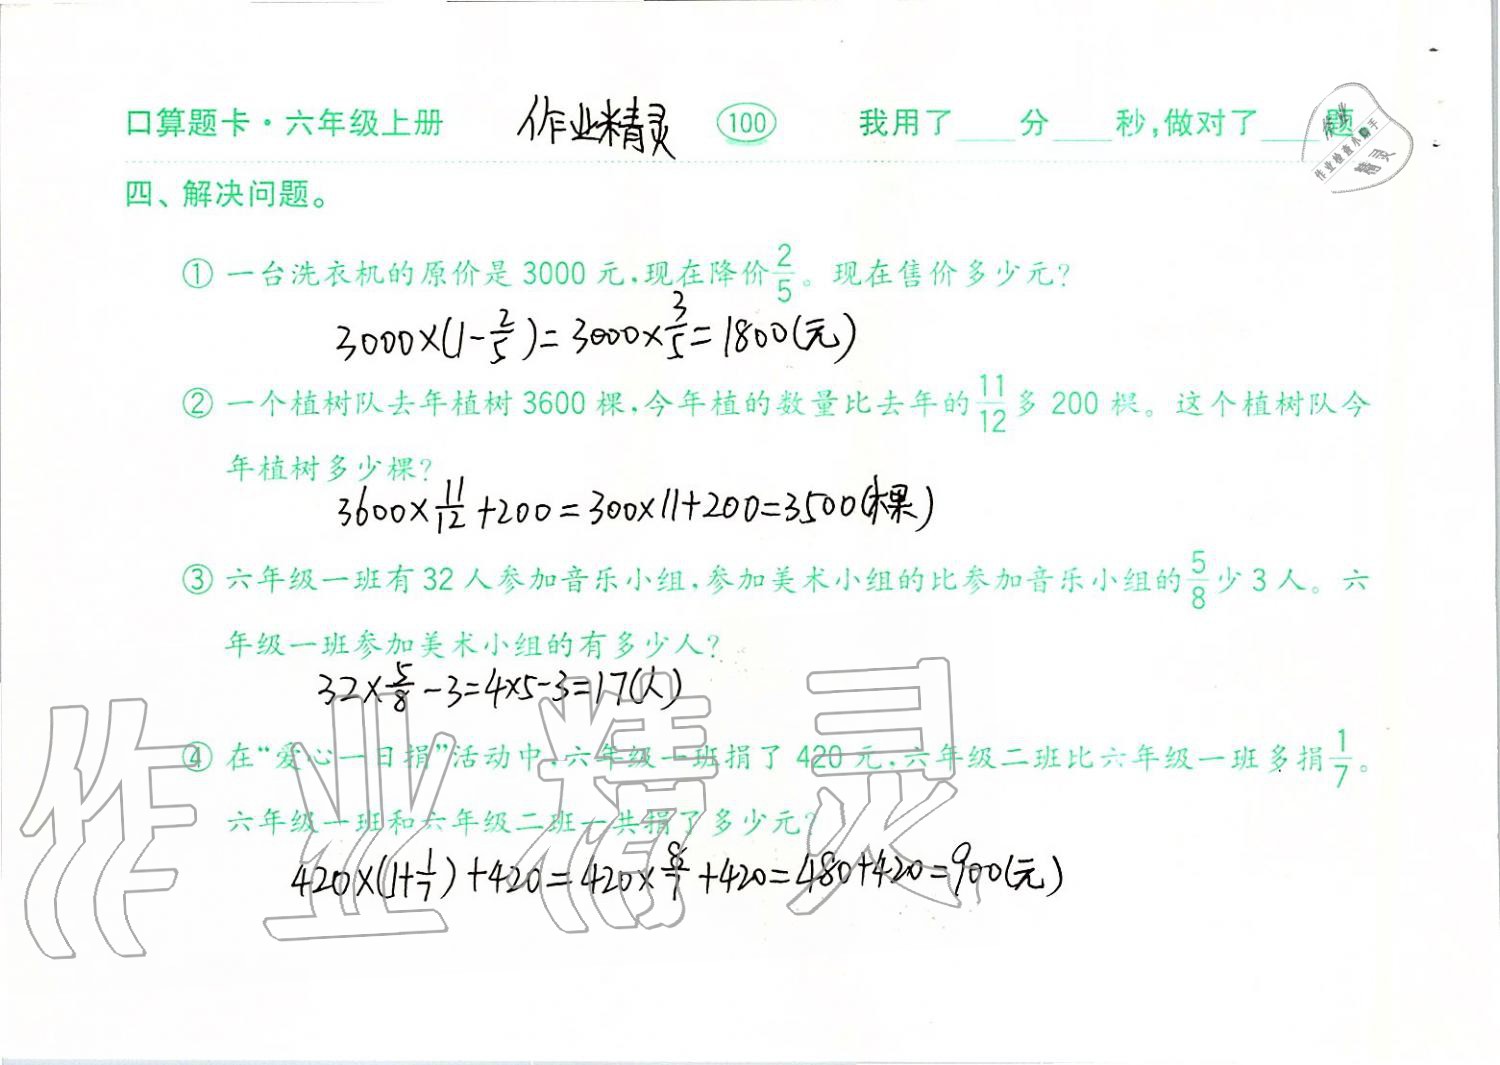 口算题卡·六年级上册 作业精灵 100 我用了____分____秒,做对了____题
作业检查小助手
精灵
四、解决问题。
① 一台洗衣机的原价是 3000 元,现在降价2/5。现在售价多少元?
3000×(1-2/5)=3000×3/5=1800(元)
② 一个植树队去年植树 3600 棵,今年植的数量比去年的11/12多 200 棵。这个植树队今
年植树多少棵?
3600×11/12+200=300×11+200=3500(棵)
③ 六年级一班有 32 人参加音乐小组,参加美术小组的比参加音乐小组的5/8少 3 人。六
年级一班参加美术小组的有多少人?
32×5/8-3=4×5-3=17(人)
④ 在“爱心一日捐”活动中,六年级一班捐了 420 元,六年级二班比六年级一班多捐1/7。
六年级一班和六年级二班一共捐了多少元?
420×(1+1/7)+420=420×8/7+420=480+420=900(元)
作业精灵